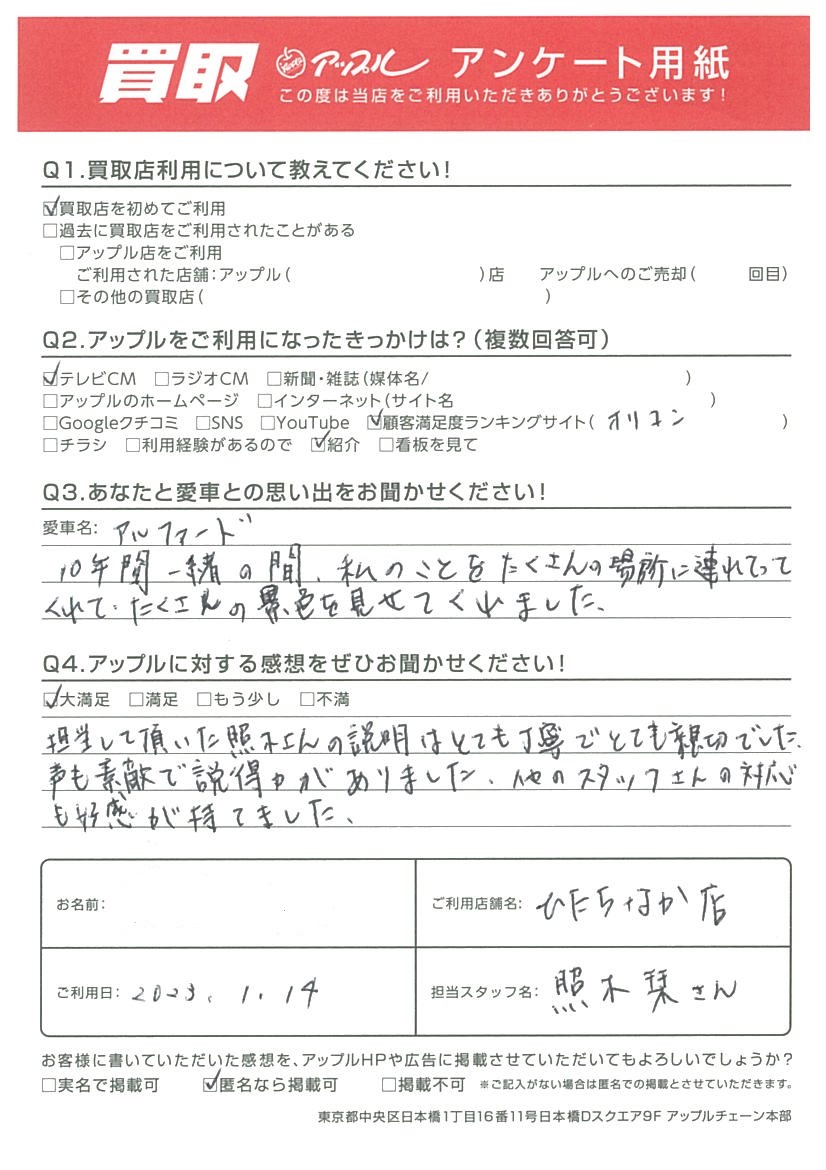 買取 アップル アンケート用紙
この度は当店をご利用いただきありがとうございます!
Q1.買取店利用について教えてください!
☑買取店を初めてご利用
□過去に買取店をご利用されたことがある
□アップル店をご利用
ご利用された店舗:アップル( )店 アップルへのご売却( 回目)
□その他の買取店( )
Q2.アップルをご利用になったきっかけは?(複数回答可)
☑テレビCM □ラジオCM □新聞・雑誌(媒体名/ )
□アップルのホームページ □インターネット(サイト名 )
□Googleクチコミ □SNS □YouTube ☑顧客満足度ランキングサイト( オリコン )
□チラシ □利用経験があるので ☑紹介 □看板を見て
Q3.あなたと愛車との思い出をお聞かせください!
愛車名: アルファード
10年間一緒の間、私のことをたくさんの場所に連れてって
くれて、たくさんの景色を見せてくれました、
Q4.アップルに対する感想をぜひお聞かせください!
☑大満足 □満足 □もう少し □不満
担当して頂いた照木さんの説明はとても丁寧でとても親切でした、
声も素敵で説得力がありました、他のスタッフさんの対応
も好感が持てました、
お名前:
ご利用店舗名: ひたちなか店
ご利用日: 2023. 1. 14
担当スタッフ名: 照木栞さん
お客様に書いていただいた感想を、アップルHPや広告に掲載させていただいてもよろしいでしょうか?
□実名で掲載可 ☑匿名なら掲載可 □掲載不可 ※ご記入がない場合は匿名での掲載とさせていただきます。
東京都中央区日本橋1丁目16番11号日本橋Dスクエア9F アップルチェーン本部